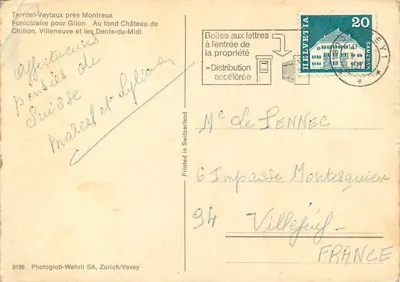 Territet-Veytaux près Montreux
Funiculaire pour Glion Au fond Château de
Chillon, Villeneuve et les Dents-du-Midi
Affectueuses
pensées de
Suisse
Marcel et Sylviane
9186 Photoglob-Wehrli SA, Zurich/Vevey
Printed in Switzerland
Boîtes aux lettres
à l'entrée de
la propriété
= Distribution
accélérée
HELVETIA
20
Mc de PENNEC
6 Impasse Montesquieu
94 Villejuif
FRANCE